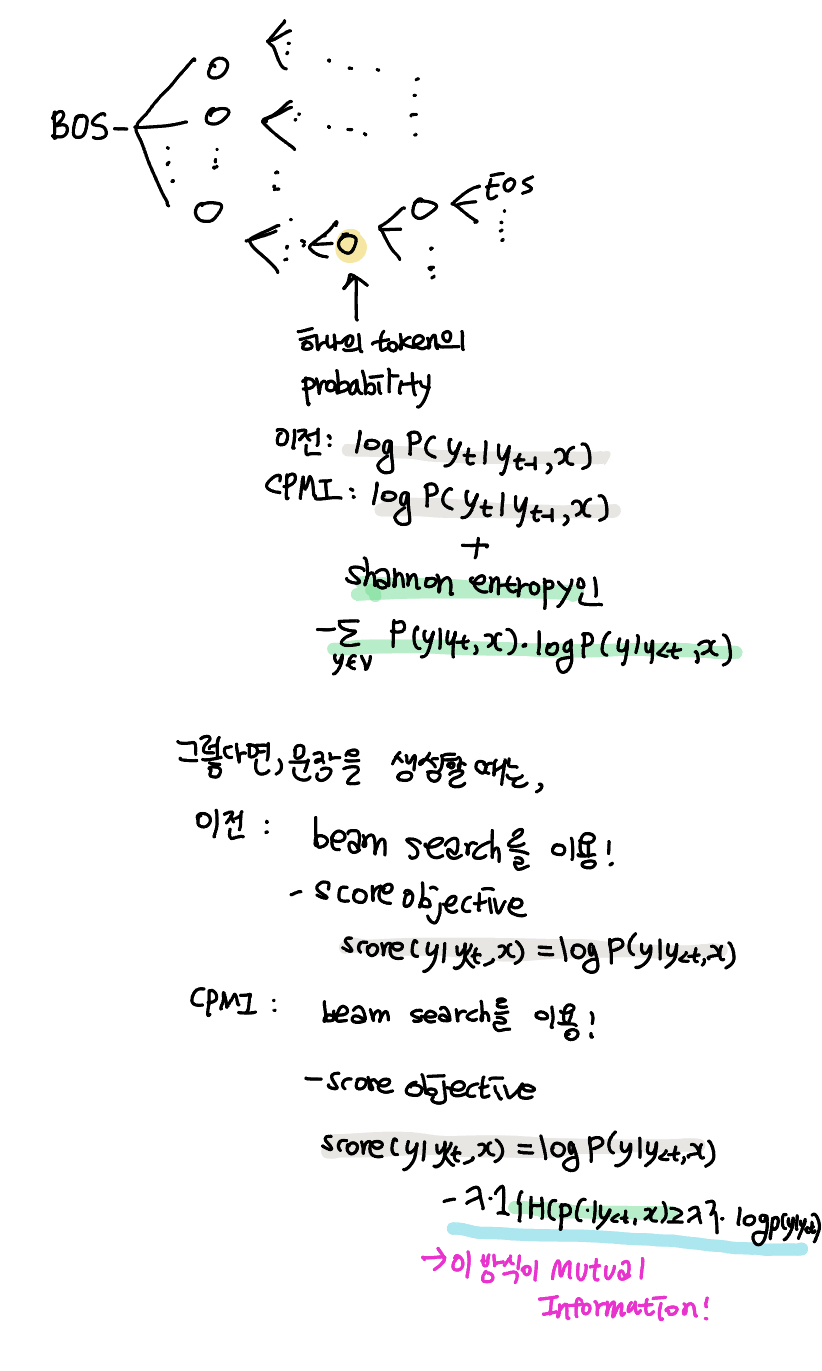 BOS
EOS
하나의 token의
probability
이전: log P(yt|yt-1,x)
CPMI: log P(yt|yt-1,x)
+
shannon entropy인
-∑ P(y|y<t,x)·logP(y|y<t,x)
y∈V
그렇다면, 문장을 생성할 때는,
이전: beam search를 이용!
- score objective
score(y|y<t,x) = log P(y|y<t,x)
CPMI: beam search를 이용!
- score objective
score(y|y<t,x) = log P(y|y<t,x)
- λ·1{H(p(·|y<t,x)≥λ}·logp(y|y<t)
→ 이 방식이 Mutual
Information!